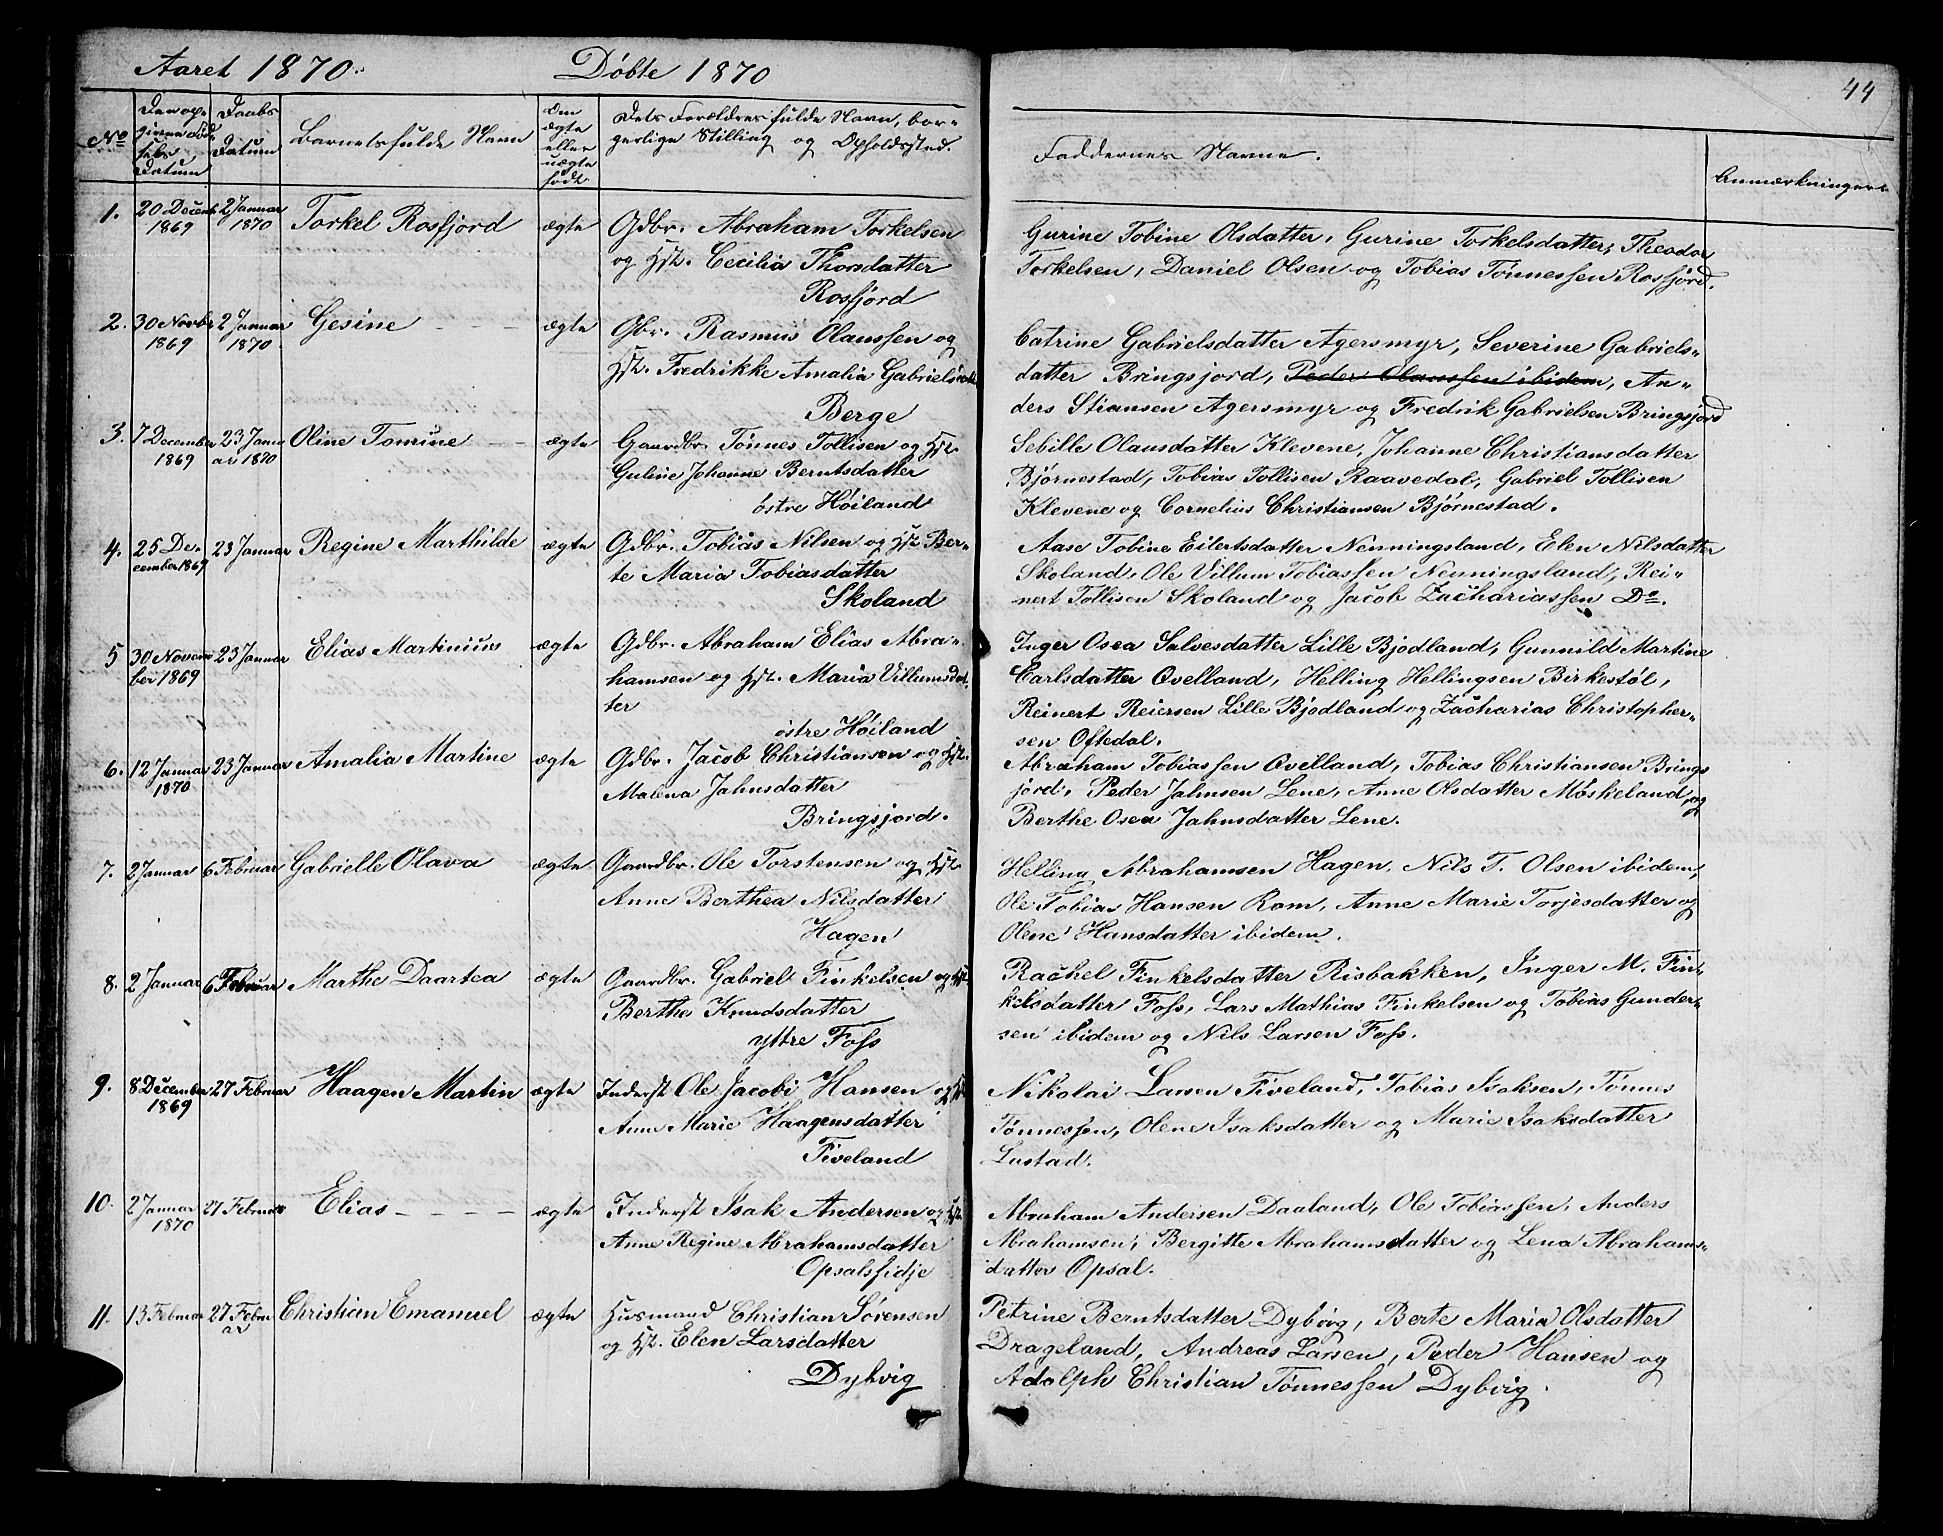 Aaret 1870.
Døbte 1870
44
No
Den op-
givne Fød-
sels
Datum
Daabs
Datum
Barnets fulde Navn
Om
ægte
eller
uægte
født.
Dets Forældres fulde Navn, bor-
gerlige Stilling og Opholdssted.
Faddernes Navne.
Anmærkninger.
1. 20 Decemb 1869
2 Januar 1870
Torkel Rosfjord
ægte
Gdbr. Abraham Torkelsen
og Hst. Cecilia Thorsdatter
Rosfjord
Gurine Tobine Olsdatter, Gurine Torkelsdatter, Theodor
Torkelsen, Daniel Olsen og Tobias Tönnessen Rosfjord.
2. 30 Novbr 1869
2 Januar 1870
Gesine
ægte
Gbr. Rasmus Olaussen og
Hst. Fredrikke Amalia Gabrielsdatter
Berge
Catrine Gabrielsdatter Agersmyr, Severine Gabriels-
datter Bringsjord, Peder Olaussen ibidem, An-
ders Stiansen Agersmyr og Fredrik Gabrielsen Bringsjord
3. 7 December 1869
23 Janu ar 1870
Oline Tomine
ægte
Gaardbr. Tønnes Tollisen og Hst.
Guline Johanne Berntsdatter
østre Høiland
Sebille Olausdatter Klevene, Johanne Christiansdatter
Bjørnestad, Tobias Tollisen Raavedal, Gabriel Tollisen
Klevene og Cornelius Christiansen Bjørnestad.
4. 25 De- cember 1869
23 Januar
Regine Marthilde
ægte
Gdbr. Tobias Nilsen og Hst Ber-
te Maria Tobiasdatter
Skoland
Aase Tobine Eilertsdatter Nenningsland, Elen Nilsdatter
Skoland, Ole Villum Tobiassen Nenningsland, Rei-
nert Tollisen Skoland og Jacob Zachariassen Do.
5 30 Novem ber 1869
23 Januar
Elias Martinius
ægte
Gdbr. Abraham Elias Abra-
hamsen og Hst. Maria Villumsdat-
ter
østre Høiland
Inger Osea Salvesdatter Lille Bjodland, Gunnild Martine
Carlsdatter Ovelland, Helling Hellingsen Birkestøl,
Reinert Reiersen Lille Bjodland og Zacharias Christopher-
sen Oftedal.
6. 12 Januar 1870
23 Januar
Amalia Martine
ægte
Gdbr. Jacob Christiansen og Hst.
Malena Jahnsdatter
Bringsjord.
Abraham Tobiassen Ovelland, Tobias Christiansen Brings
jord, Peder Jahnsen Lene, Anne Olsdatter Møskeland, og
Berthe Osea Jahnsdatter Lene.
7. 2 Januar
6 Februar
Gabrielle Olava
ægte
Gaardbr. Ole Torstensen og Hst.
Anne Berthea Nilsdatter
Hagen
Helling Abrahamsen Hagen, Nils T. Olsen ibidem,
Ole Tobias Hansen Rom, Anne Marie Torjesdatter og
Olene Hansdatter ibidem.
8. 2 Januar
6 Februar
Marthe Daartea
ægte
Gaardbr. Gabriel Finkelsen og Hst.
Berthe Knudsdatter
yttre Foss
Rachel Finkelsdatter Risbakken, Inger M. Fin-
kelsdatter Foss, Lars Mathias Finkelsen og Tobias Gunder-
sen ibidem og Nils Larsen Foss.
9. 8 December 1869
27 Februar
Haagen Martin
ægte
Inderst Ole Jacobi Hansen og Hst
Anne Marie Haagensdatter
Fiveland
Nikolai Larsen Fiveland, Tobias Isaksen, Tønnes
Tønnessen, Olene Isaksdatter og Marie Isaksdatter
Lustad.
10. 2 Januar 1870
27 Februar
Elias
ægte
Inderst Isak Andersen og Hst.
Anne Regine Abrahamsdatter
Opsalsfidje
Abraham Andersen Daaland, Ole Tobiassen, Anders
Abrahamsen, Bergitte Abrahamsdatter og Lena Abrahams-
datter Opsal.
11. 13 Februar
27 Febru ar
Christian Emanuel
ægte
Husmand Christian Sørensen
og Hst. Elen Larsdatter
Dybvig
Petrine Berntsdatter Dybvig, Berte Maria Olsdatter
Drageland, Andreas Larsen, Peder Hansen og
Adolph Christian Tønnessen Dybvig.